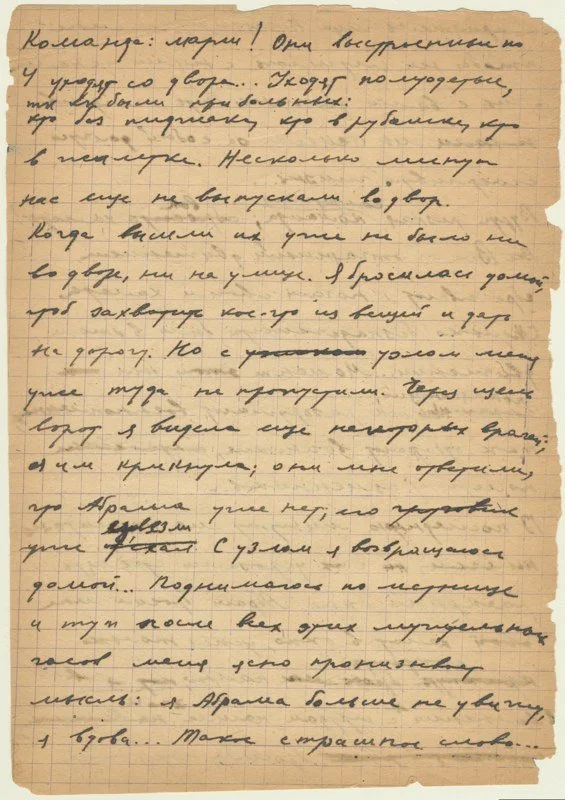 Команда: марш! Они выстроены по
4 уходят со двора... Уходят полуодетые,
тк кк были при больных:
кто без пиджака, кто в рубашке, кто
в жилетке. Несколько минут
нас еще не выпускали во двор.
Когда вышли их уже не было ни
во дворе, ни на улице. Я бросилась домой,
чтоб захватить кое-что из вещей и дать
на дорогу. Но с узлом меня
уже туда не пропустили. Через щель
ворот я видела еще некоторых врачей,
я им крикнула; они мне ответили,
что Абраша уже нет, его
увезли
уже С узлом я возвращаюсь
домой... Поднимаюсь по лестнице
и тут после всех этих мучительных
часов меня ясно пронизывает
мысль: я Абраша больше не увижу,
я вдова... Такое страшное слово...